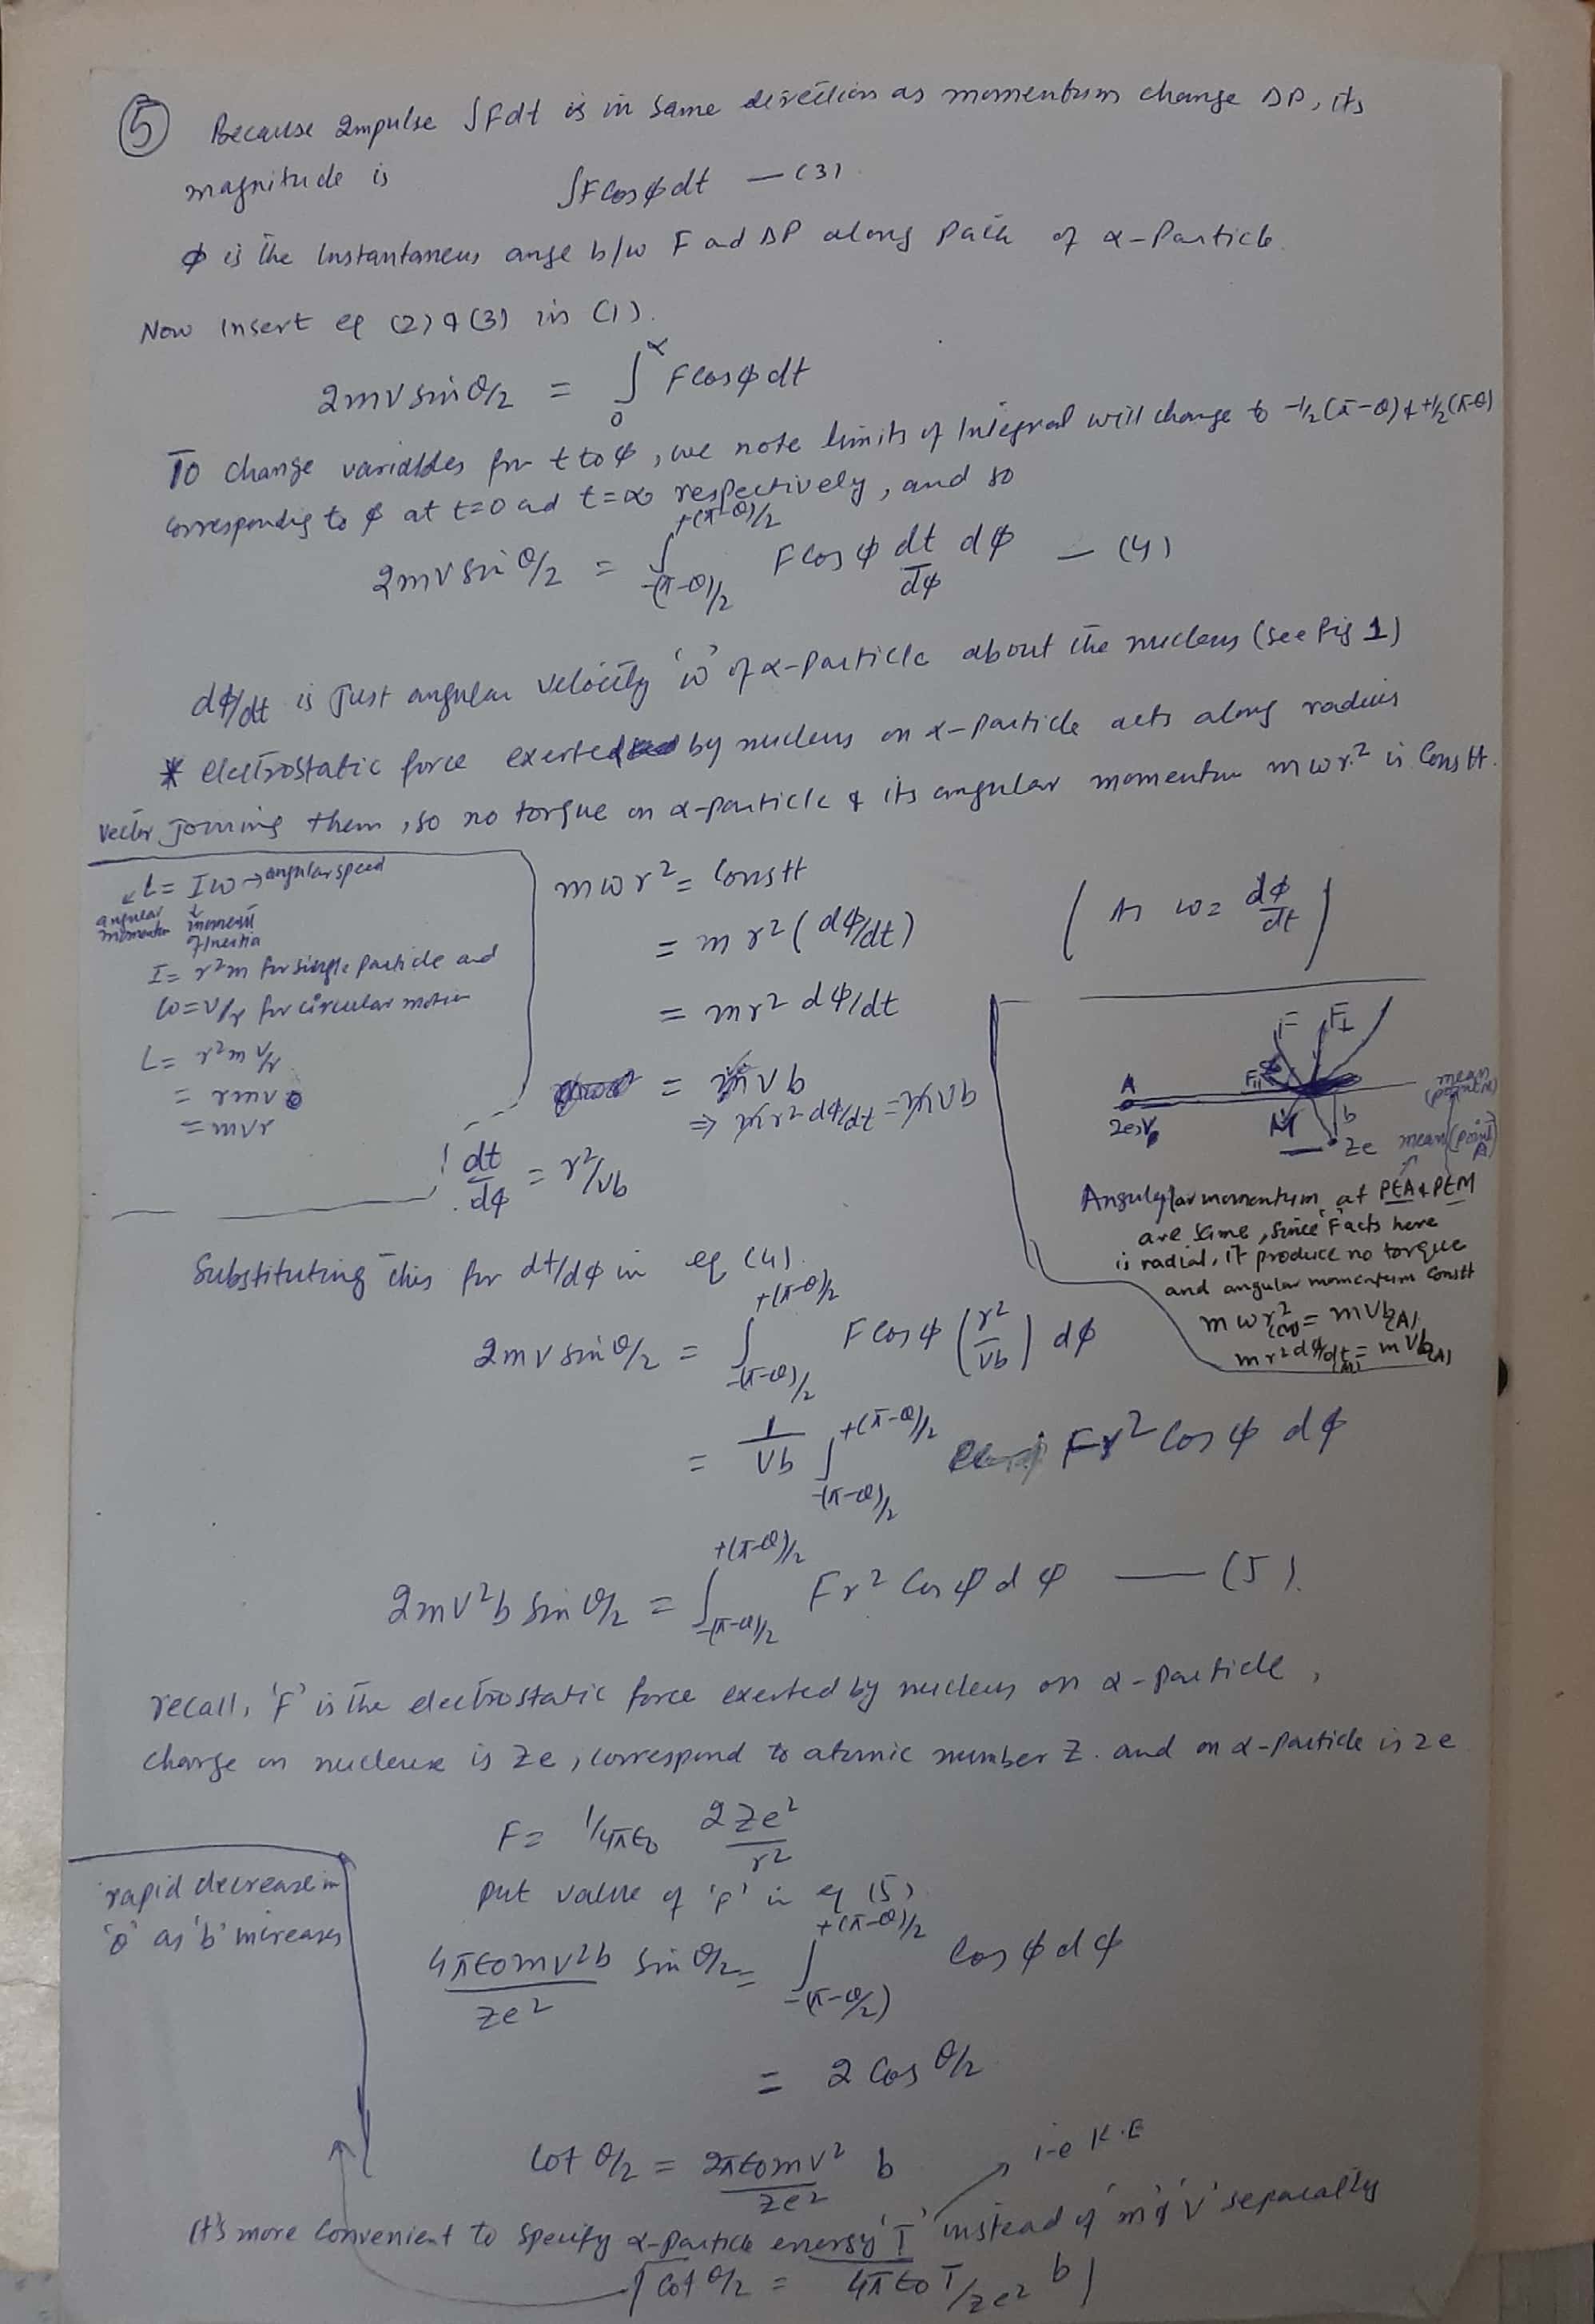 ⑤ Because Impulse ∫Fdt is in same direction as momentum change ΔP, its
magnitude is ∫Fcosφdt — (3)
φ is the Instantaneus ange b/w F ad ΔP along path of α-Particle.
Now insert eq (2) & (3) in (1).
2mv sin θ/2 = ∫₀^∝ Fcosφdt
To change variables frm t to φ, we note limits of Integral will change to -1/2(π-θ) & +1/2(π-θ)
correspondig to φ at t=0 and t=∞ respectively, and so
2mv sin θ/2 = ∫_{-(π-θ)/2}^{+(π-θ)/2} Fcosφ dt/dφ dφ — (4)
dφ/dt is Just angular velocity 'ω' of α-Particle about the nucleus (see fig 1)
* electrostatic force exerted by nucleus on α-particle acts along radius
vector joining them, so no torque on α-particle & its angular momentum mωr² is Constt.
L = Iω → angular speed
angular momentum
moment of Inertia
I = r²m for single particle and
ω = v/r for circular motion
L = r²m v/r
= rmv
= mvr
mωr² = Constt
= mr² (dφ/dt)
(As ω = dφ/dt)
= mr² dφ/dt
= mvb
⇒ mr² dφ/dt = mvb
dt/dφ = r²/vb
F F⊥
A F∥
2e, V M b
Ze
mean (point M)
mean (point A)
Angular momentum at PEA & PEM
are same, since F acts here
is radial, it produce no torque
and angular momentum Constt
mωr²(M) = mVb(A)
mr²dφ/dt(M) = mVb(A)
Substituting this for dt/dφ in eq (4).
2mv sin θ/2 = ∫_{-(π-θ)/2}^{+(π-θ)/2} Fcosφ (r²/vb) dφ
= 1/vb ∫_{-(π-θ)/2}^{+(π-θ)/2} Fr² cosφ dφ
2mv²b sin θ/2 = ∫_{-(π-θ)/2}^{+(π-θ)/2} Fr² cosφ dφ — (5).
recall, 'F' is the electrostatic force exerted by nucleus on α-particle,
charge on nucleus is Ze, correspond to atomic number Z. and on α-particle is 2e
F = 1/4πε₀ 2Ze²/r²
put value of 'F' in eq (5)
rapid decrease in
'θ' as 'b' increases
4πε₀mv²b/Ze² sin θ/2 = ∫_{-(π-θ/2)}^{+(π-θ)/2} cosφdφ
= 2 cos θ/2
cot θ/2 = 2πε₀mv²/Ze² b
i-e K.E
It's more convenient to specify α-particle energy 'T' instead of 'm' & 'v' separatly
[cot θ/2 = 4πε₀T/Ze² b]